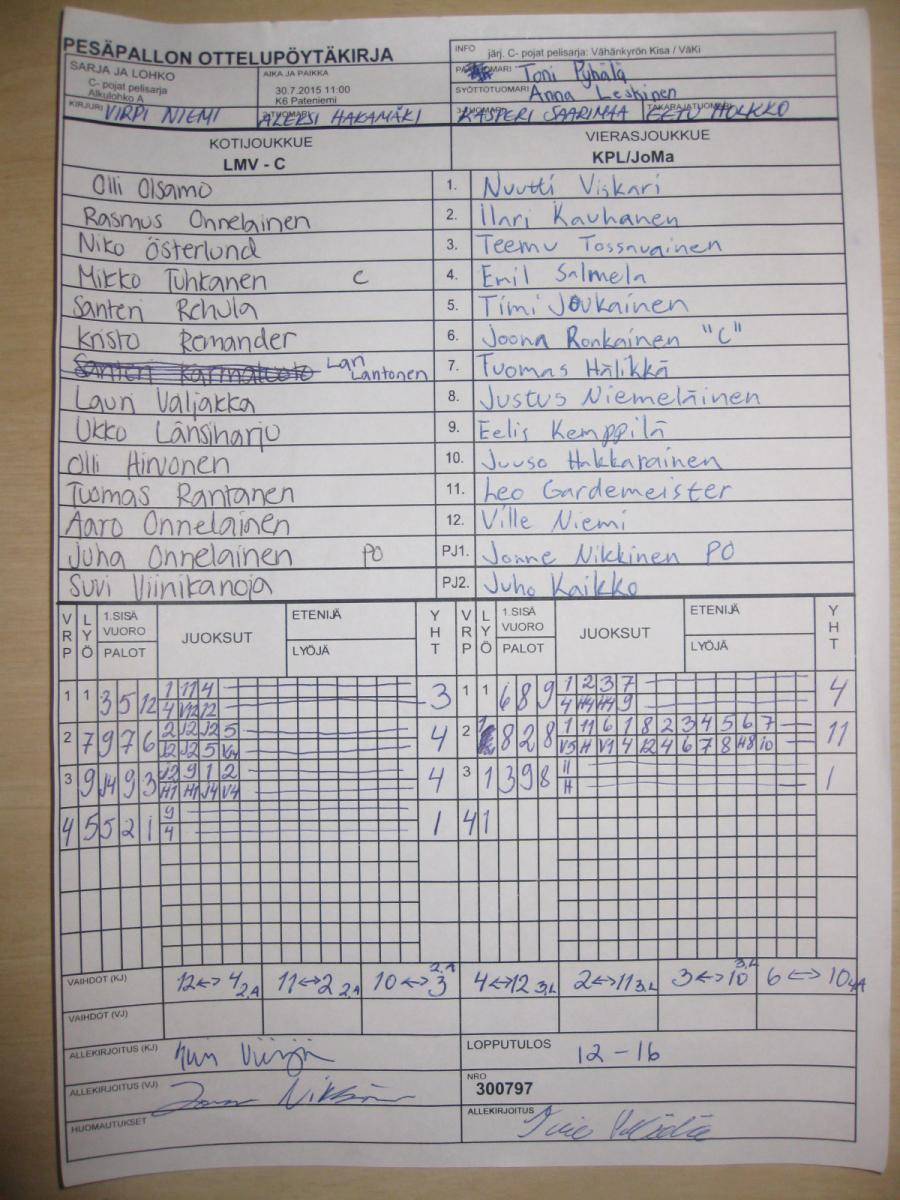 PESÄPALLON OTTELUPÖYTÄKIRJA
INFO järj. C- pojat pelisarja: Vähänkyrön Kisa / VäKi
SARJA JA LOHKO
C- pojat pelisarja
Alkulohko A
AIKA JA PAIKKA
30.7.2015 11:00
K6 Pateniemi
Toni Pyhälä
SYÖTTÖTUOMARI Anna Leskinen
KIRJURI VIRPI NIEMI
2-TUOMARI ALEKSI HAKAMÄKI
3-TUOMARI KASPERI SAARIMAA
TAKARAJATUOMARI EETU HOLKKO
KOTIJOUKKUE
LMV - C
VIERASJOUKKUE
KPL/JoMa
Olli Olsamo 1. Nuutti Viskari
Rasmus Onnelainen 2. Ilari Kauhanen
Niko Österlund 3. Teemu Tossavainen
Mikko Tuhkanen C 4. Emil Salmela
Santeri Rehula 5. Timi Joukainen
Kristo Remander 6. Joona Ronkainen "C"
Lantonen 7. Tuomas Hälikkä
Lauri Valjakka 8. Justus Niemeläinen
Ukko Länsiharju 9. Eelis Kemppilä
Olli Hirvonen 10. Juuso Hakkarainen
Tuomas Rantanen 11. Leo Gardemeister
Aaro Onnelainen 12. Ville Niemi
Juha Onnelainen PO PJ1. Jonne Nikkinen PO
Suvi Viinikanoja PJ2. Juho Kaikko
VRP LYÖ 1.SISÄ VUORO PALOT JUOKSUT ETENIJÄ LYÖJÄ YHT VRP LYÖ 1.SISÄ VUORO PALOT JUOKSUT ETENIJÄ LYÖJÄ YHT
1 1 3 5 12 1 11 4 3 1 1 6 8 9 1 2 3 7 4
4 V12 12 4 H4 H4 9
2 7 9 7 6 2 J2 J2 5 4 2 8 2 8 1 11 6 1 8 2 3 4 5 6 7 11
12 12 5 V4 V5 H V1 4 12 4 6 7 8 H8 10
3 9 J4 9 3 J2 9 1 2 4 3 1 3 9 8 11 1
H1 H1 J4 V4 H
4 5 5 2 1 9 1 4 1
4
VAIHDOT (KJ) 12<->4 2,A 11<->2 2,A 10<->3 2,A 4<->12 3,L 2<->11 3,L 3<->10 3,L 6<->10 4A
VAIHDOT (VJ)
ALLEKIRJOITUS (KJ)
LOPPUTULOS 12 - 16
ALLEKIRJOITUS (VJ)
NRO
300797
HUOMAUTUKSET
ALLEKIRJOITUS